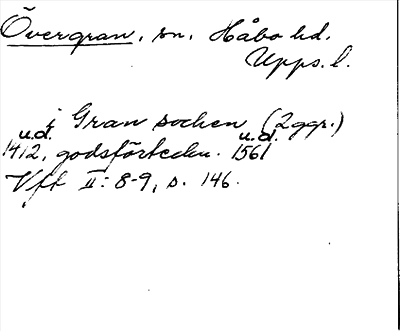 Övergran, sn, Håbo hd.
Upps. l.
i Gran sochen (2 ggr.)
u.d. u.d.
1412, godsförteckn. 1561
Vft II: 8-9, s. 146.